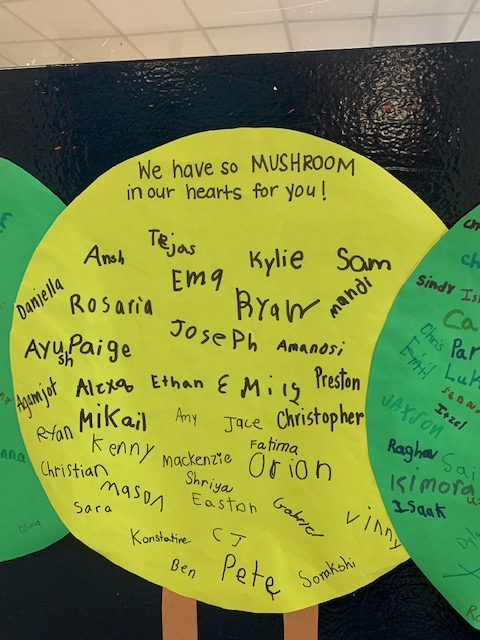 We have so MUSHROOM
in our hearts for you!
Tejas
Ansh
Kylie
Sam
Ema
Daniella
Rosaria
Ryan
Mandi
Joseph
Amanosi
Ayush
Paige
Agamjot
Alexa
Ethan
Emily
Preston
Mikail
Amy
Jace
Christopher
Ryan
Kenny
Fatima
Mackenzie
Orion
Christian
Shriya
Mason
Easton
Sara
Gabriel
Vinny
Konstatire
CJ
Ben
Pete
Somakshi
Sindy
Chris
Emil
JAXSON
Raghav
Kimora
Isaak
Olivia